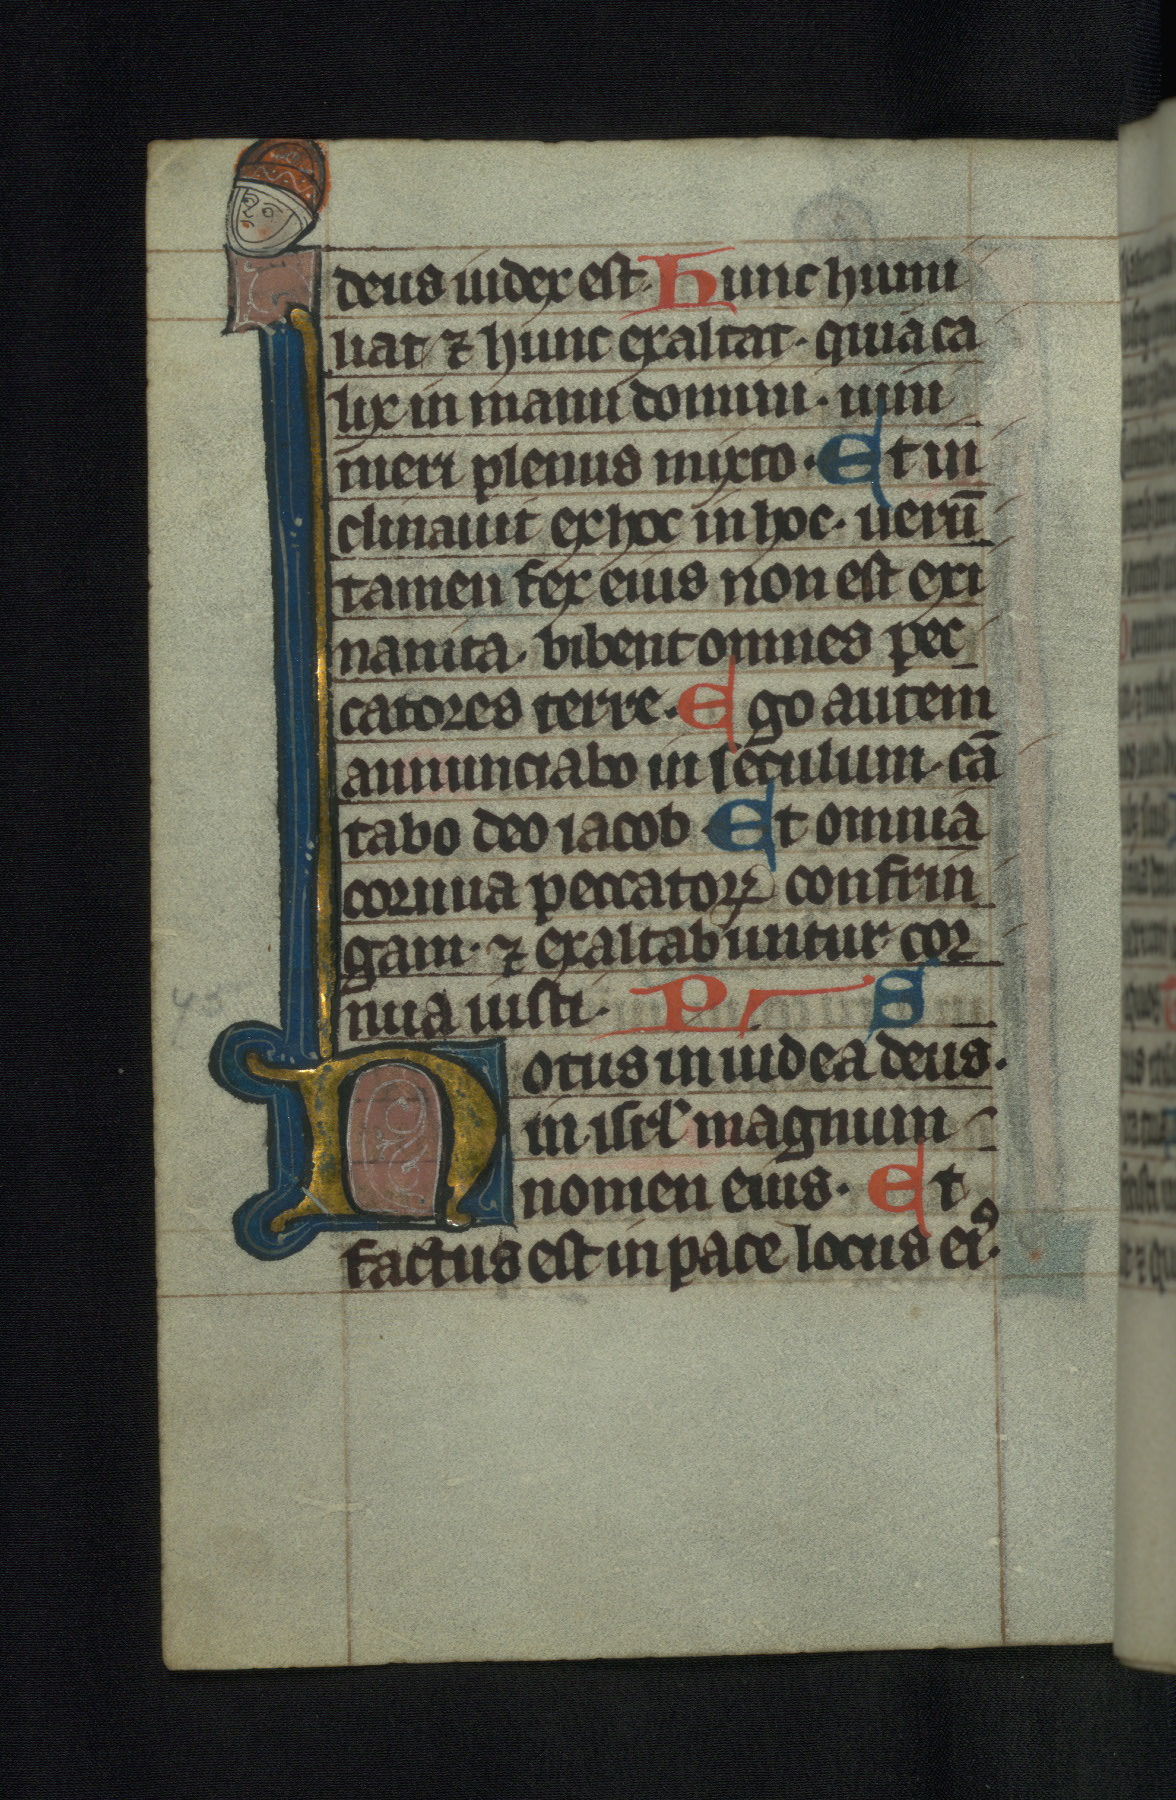 deus iudex est. Hunc humi
liat ⁊ hunc exaltat. quia ca
lix in manu domini. uini
meri plenus mixto. Et in
clinauit ex hoc in hoc. uerū
tamen fex eius non est exi
nanita. bibent omnes pec
catores terre. Ego autem
annunciabo in seculum. cā
tabo deo iacob. Et omnia
cornua peccatoꝝ confrin
gam. ⁊ exaltabuntur cor
nua iusti. PS
Notus in iudea deus.
in isrl magnum
nomen eius. Et
factus est in pace locus eiꝰ.